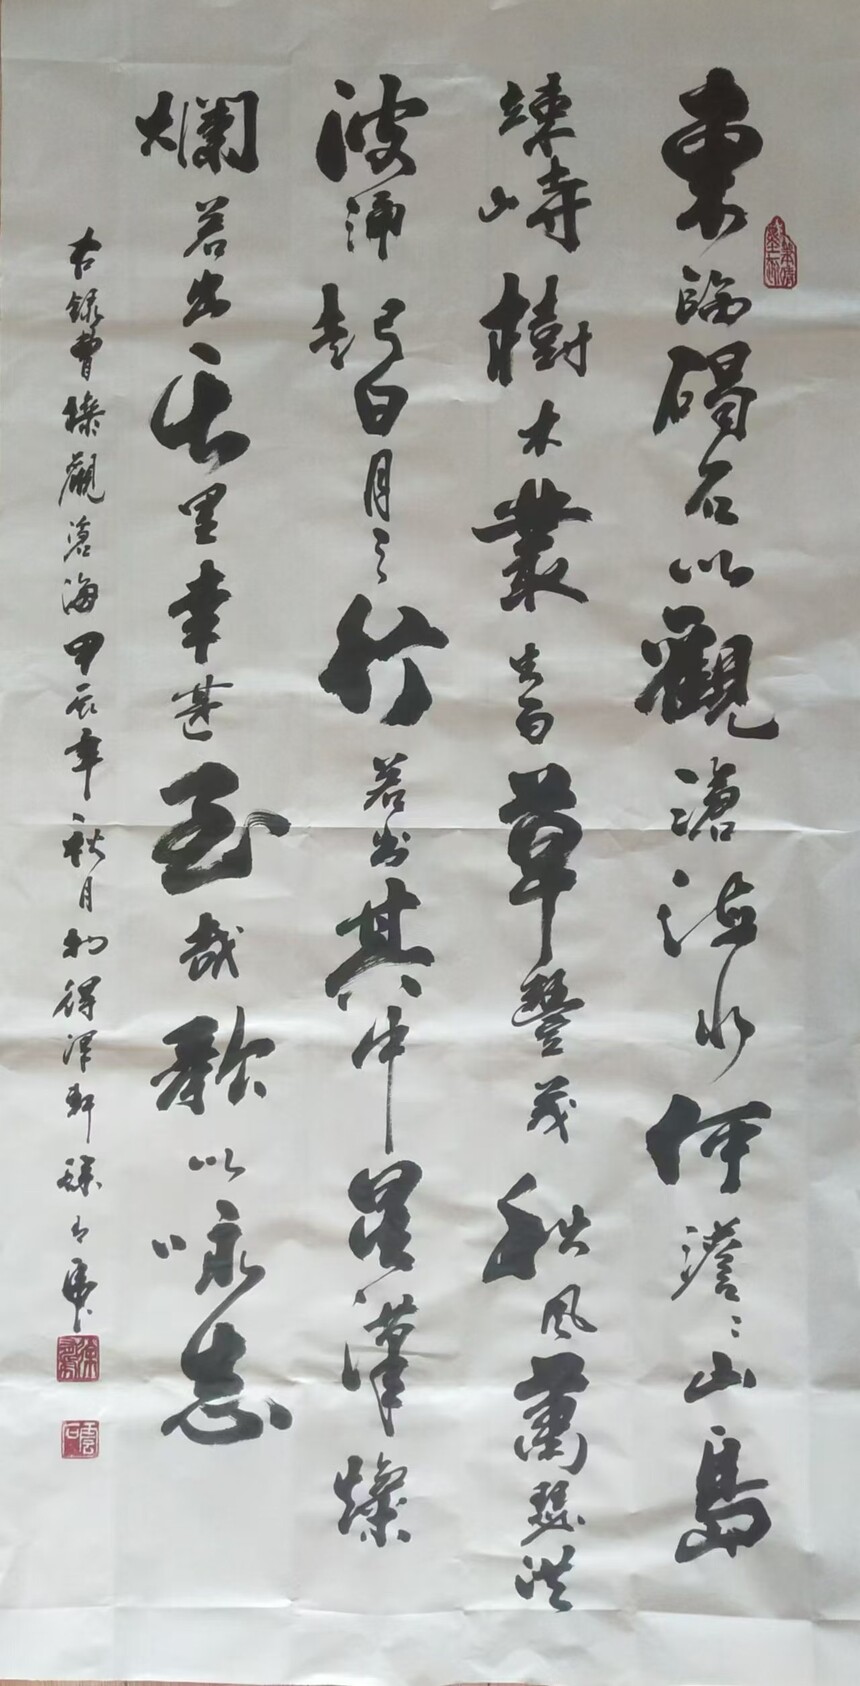 東臨碣石以觀滄海水何澹〻山島
竦峙樹木叢生百草豐茂秋風蕭瑟洪
波涌起日月〻行若出其中星漢燦
爛若出其里幸甚至哉歌以咏志
右錄曹操觀滄海甲辰年秋月於得澤軒